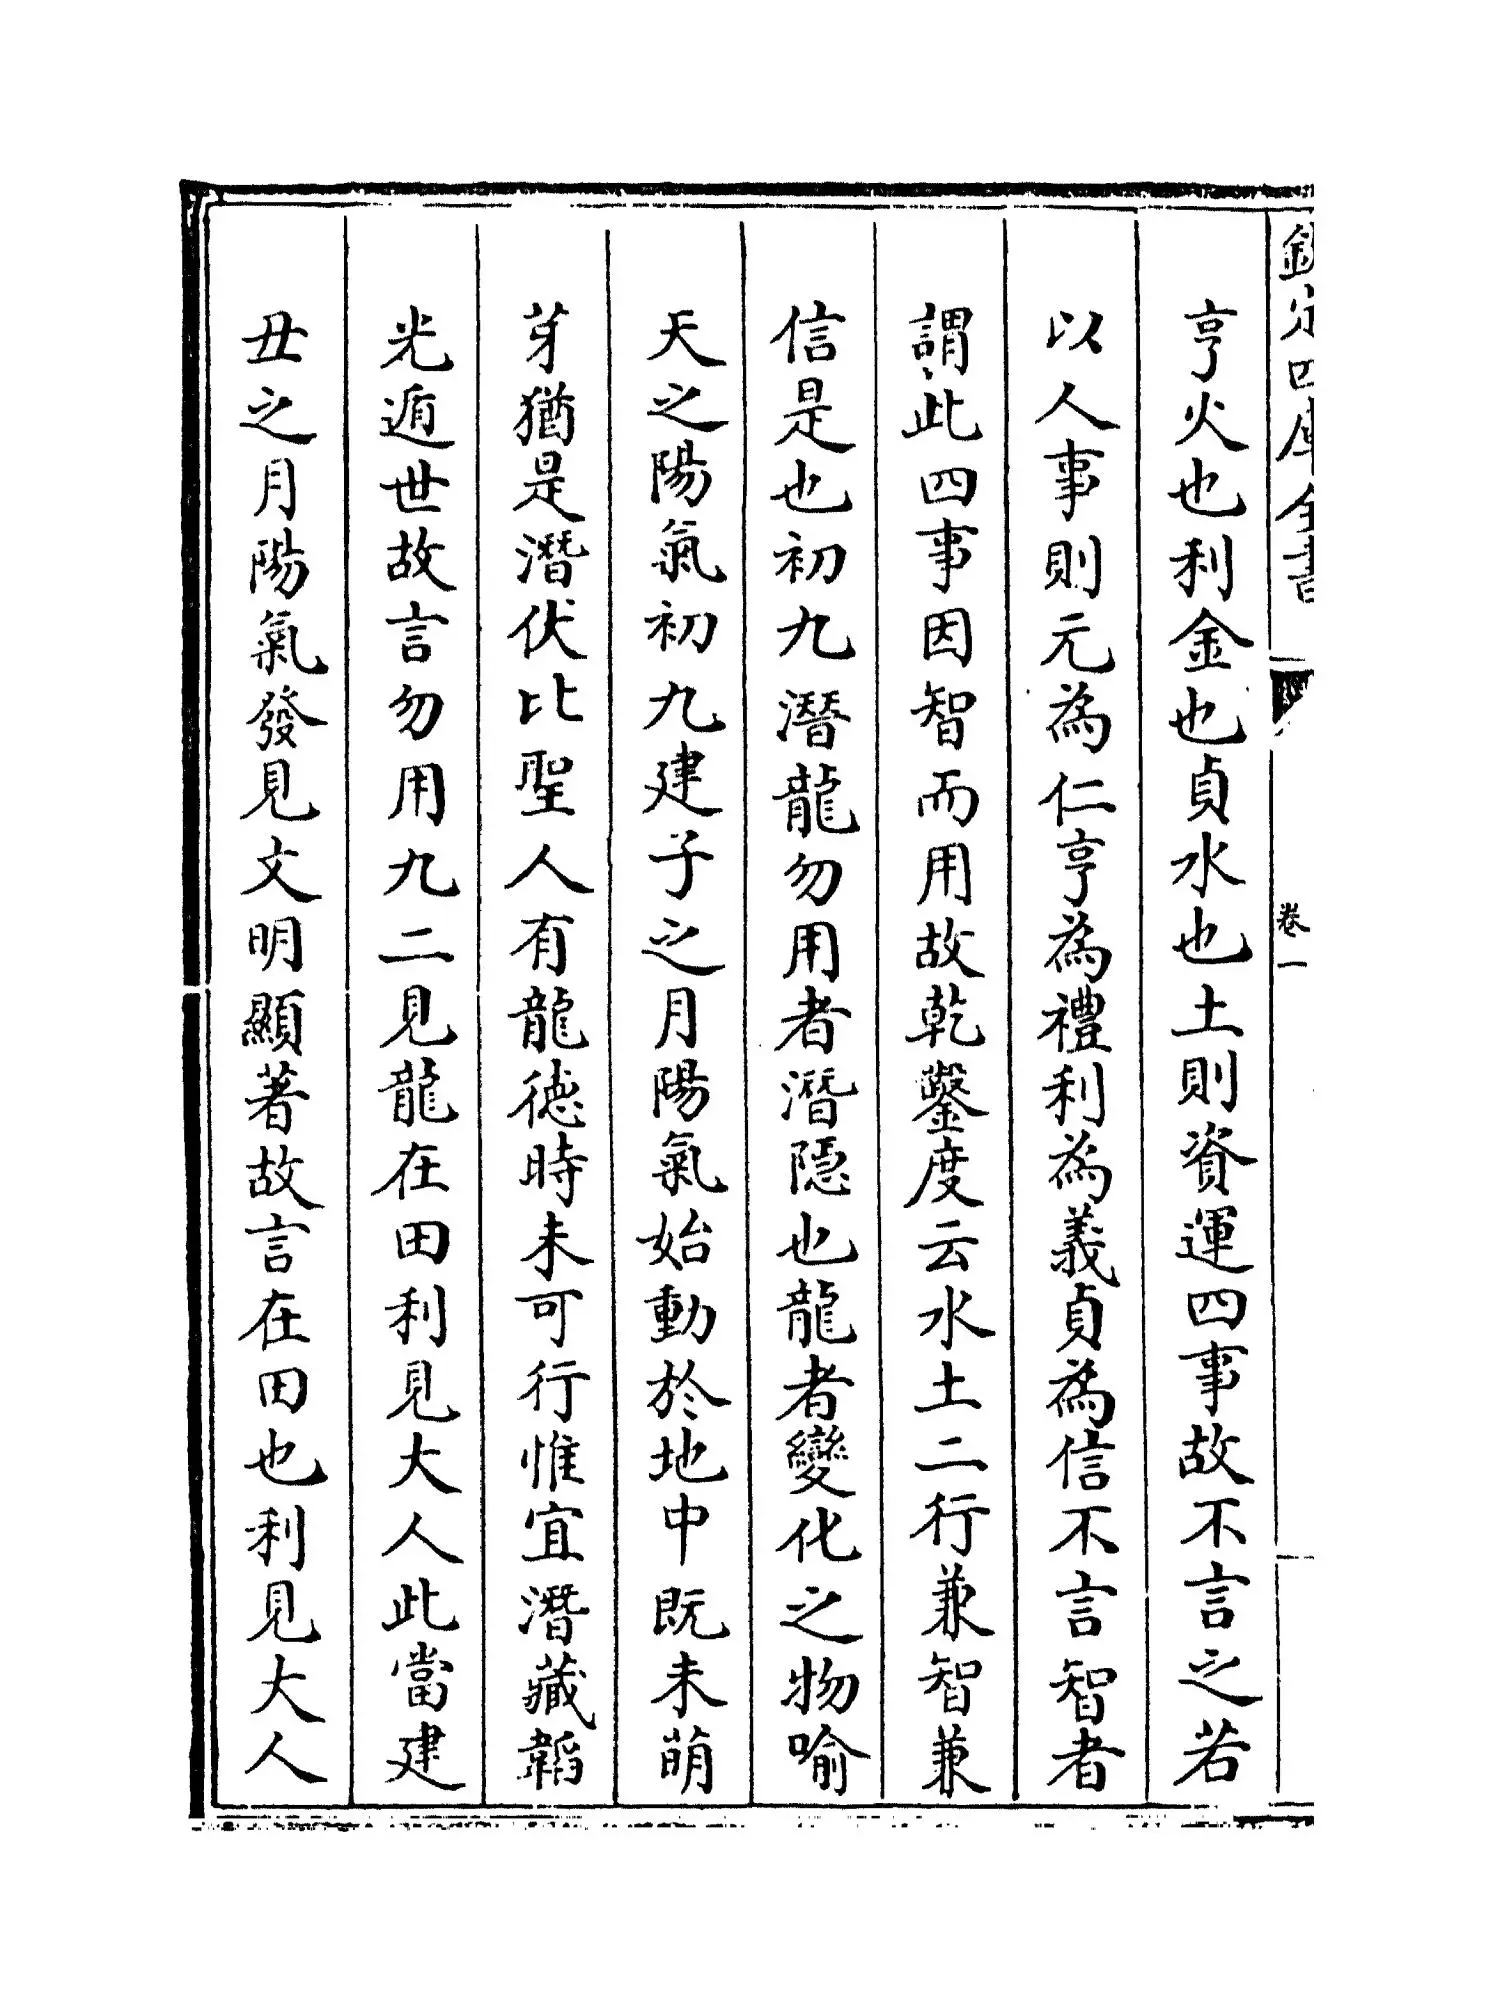 欽定四庫全書
卷一
亨火也利金也貞水也土則資運四事故不言之若
以人事則元為仁亨為禮利為義貞為信不言智者
謂此四事因智而用故乾鑿度云水土二行兼智兼
信是也初九潛龍勿用者潛隱也龍者變化之物喻
天之陽氣初九建子之月陽氣始動於地中既未萌
芽猶是潛伏比聖人有龍德時未可行惟宜潛藏韜
光遁世故言勿用九二見龍在田利見大人此當建
丑之月陽氣發見文明顯著故言在田也利見大人